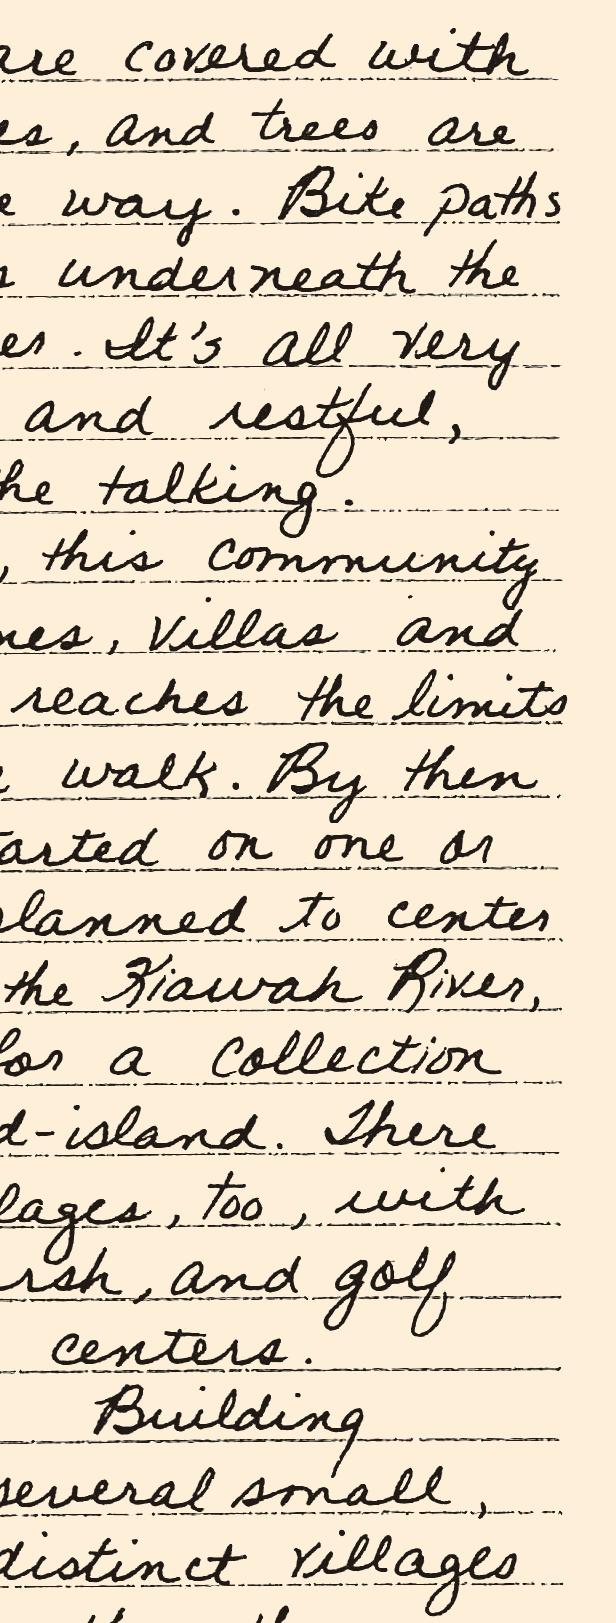 are covered with
es, and trees are
e way. Bike paths
s underneath the
es. It's all very
and restful,
he talking.
, this community
mes, Villas and
reaches the limits
walk. By then
arted on one or
planned to center
the Kiawah River,
for a Collection
d-island. There
lages, too, with
rsh, and golf
centers.
Building
several small,
distinct villages